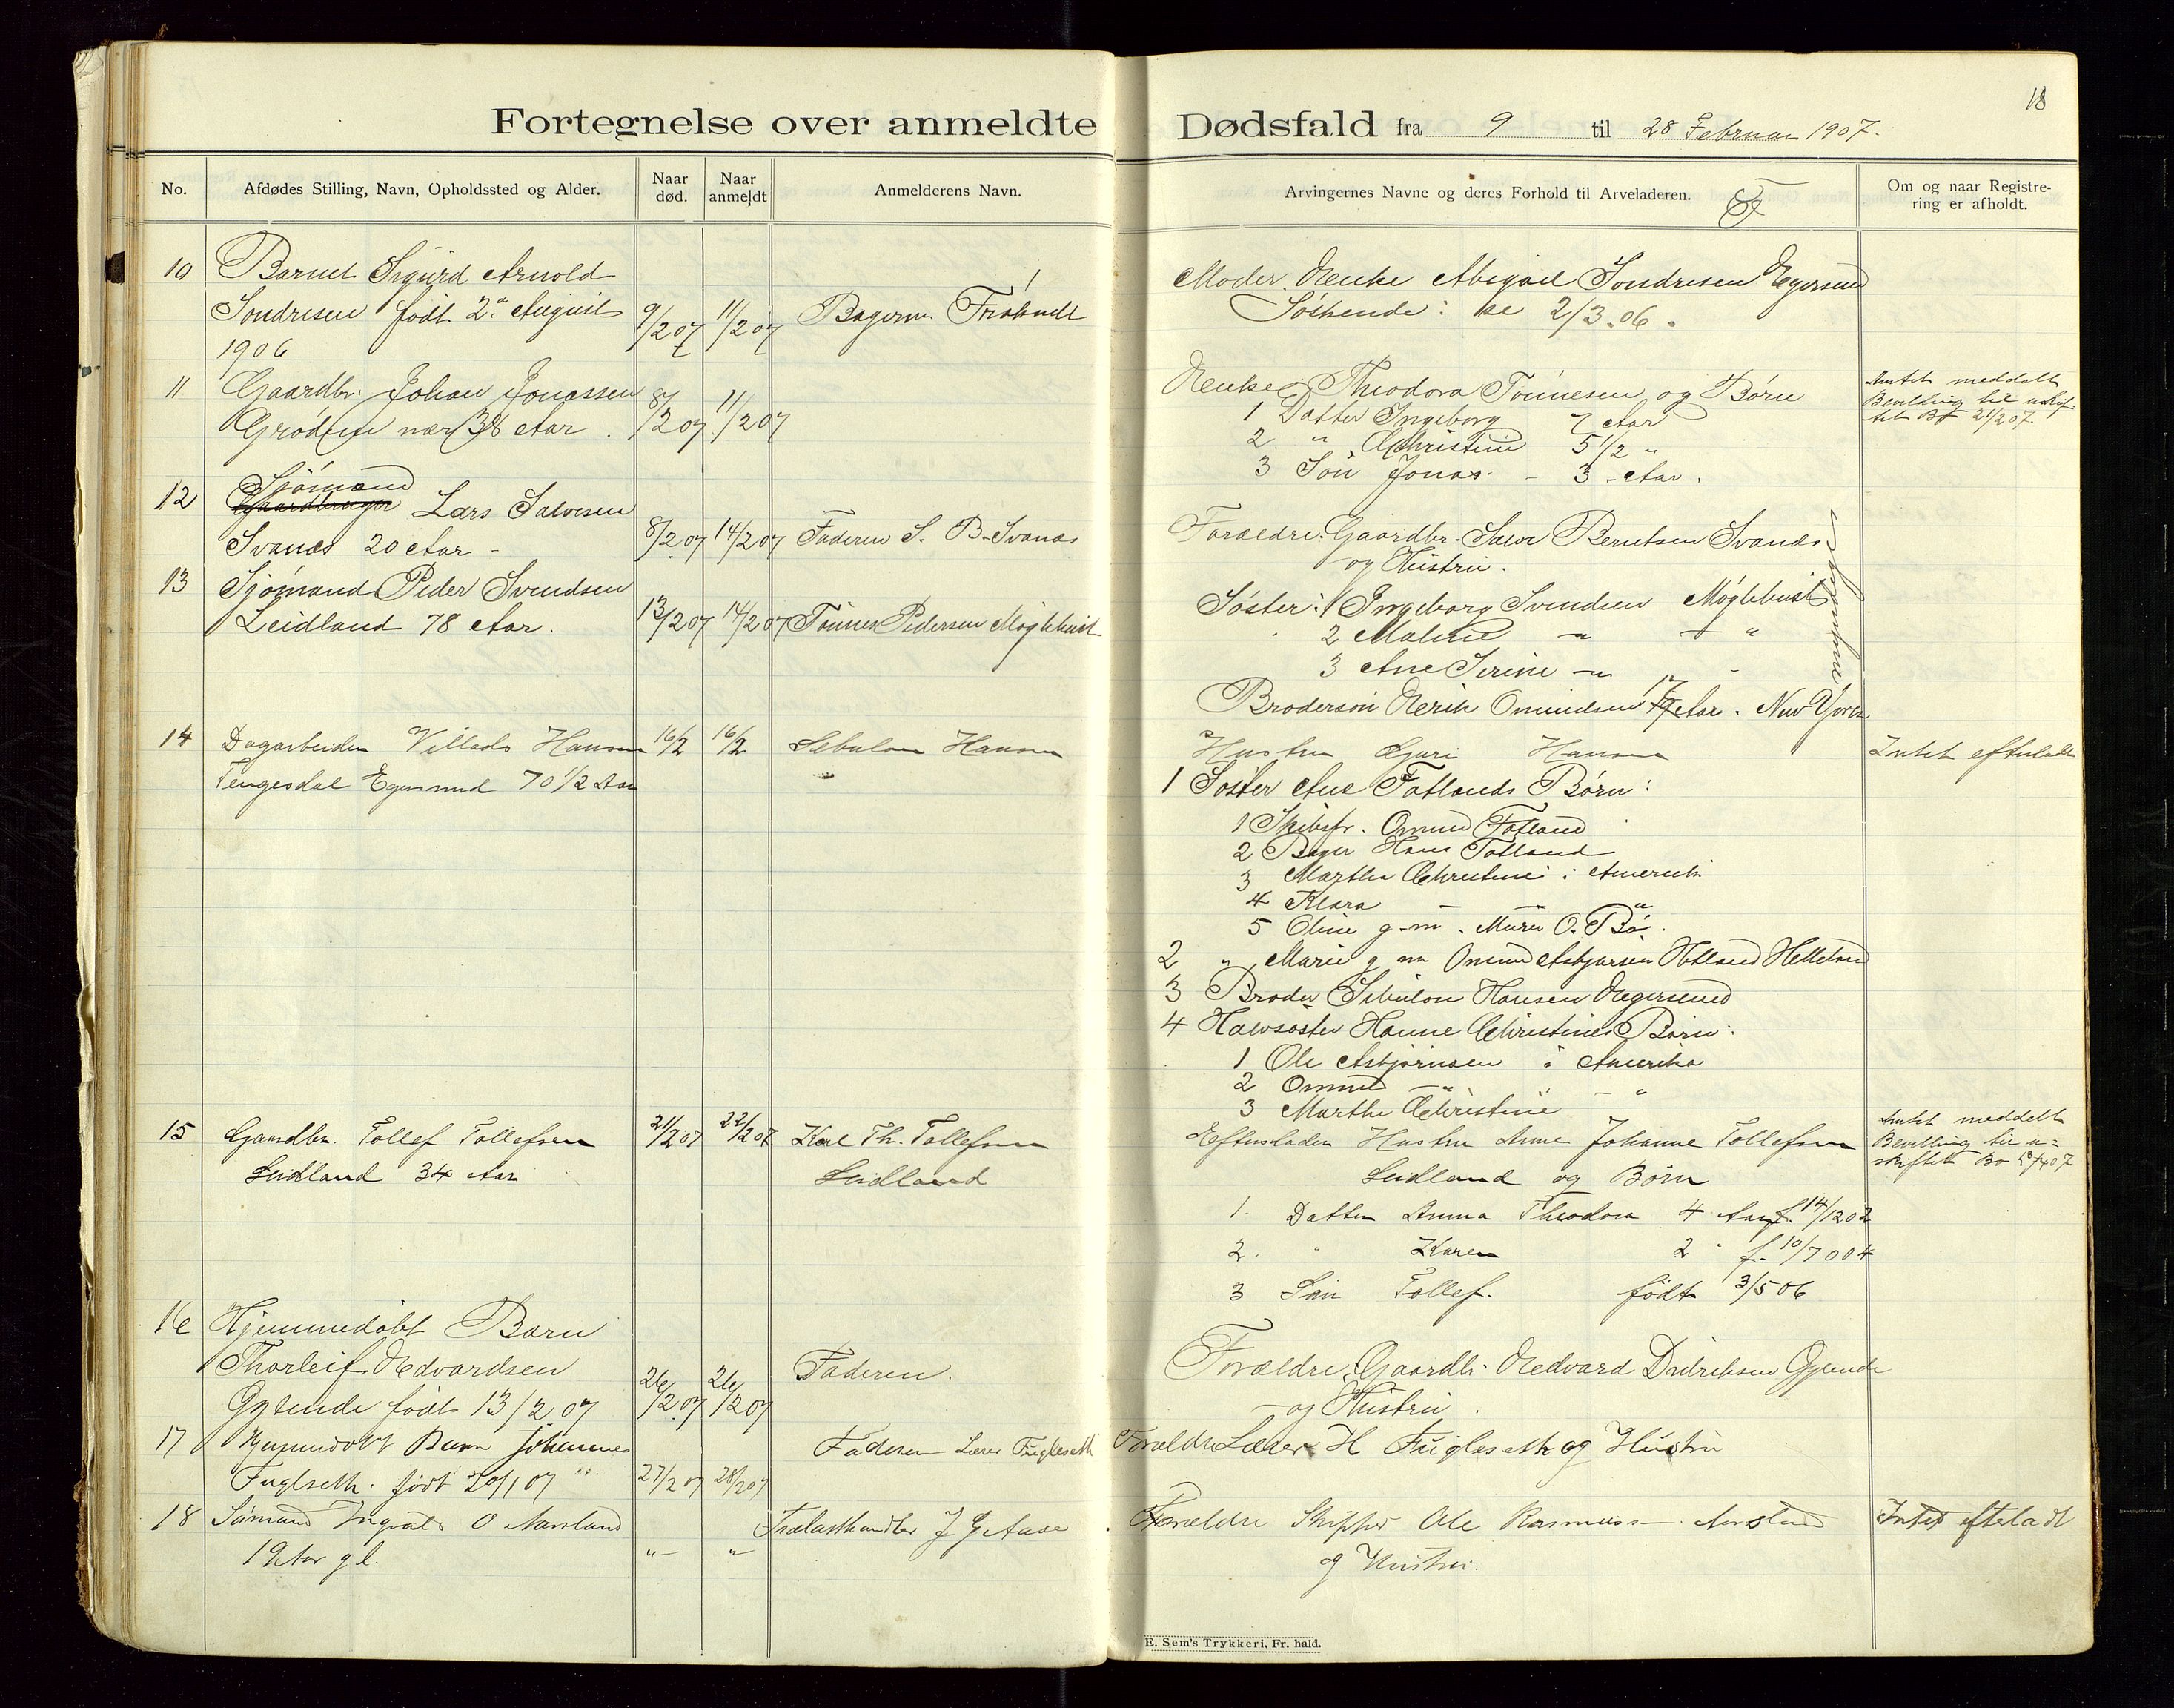 18
Fortegnelse over anmeldte Dødsfald fra 9 til 28 Februar 1907.
No.
Afdødes Stilling, Navn, Opholdssted og Alder.
Naar død.
Naar anmeldt
Anmelderens Navn.
Arvingernes Navne og deres Forhold til Arveladeren.
Om og naar Registre-
ring er afholdt.
10 Barnet Sigurd Arnold
Sondresen født 2. August
1906
9/2 07 11/2 07
Bagerm.
Moder. Enke Abigael Sondresen Egersund
Søskende: se 2/3.06.
11 Gaardbr. Johan Jonassen
Grødem nær 38 Aar.
8/2 07 11/2 07
Enke Theodora Tønnesen og Børn
1 Datter Ingeborg 7 Aar
2 " Christine 5 1/2 "
3 Søn Jonas - 3 - Aar.
Amtet meddelt
Bevilling til uskif-
tet Bo 21/2 07.
12 Sjømand
Gaardbruger Lars Salvesen
Svanes 20 Aar -
8/2 07 14/2 07
Faderen S. B. Svanes
Forældre: Gaardbr. Salve Berntsen Svanes
og Hustru.
13 Sjømand Peder Svendsen
Leidland 78 Aar.
13/2 07 14/2 07
Tønnes Pedersen Møglehust
Søster: 1 Ingeborg Svendsen Møglehust
2 Maline - " - "
3 Ane Serine - " -
Brodersøn Erik Omundsen 17 Aar. New York
14 Dagarbeider Villads Hansen
Tengesdal Egersund 70 1/2 Aar
16/2 16/2
Sebulon Hansen
Hustru Guri Hansen
Intet efterladt
1 Søster Ane Fotlands Børn:
1 Skibsfr. Omund Fotland
2 Bager Hans Fotland
3 Martha Christine i Amerika
4 Klara - " -
5 Oline g. m. Murer O. Bø.
2 " Marie g m Omund Asbjørnsen Hetland Helleland
3 Broder Sebulon Hansen Egersund
4 Halvsøster Hanne Christines Børn:
1 Ole Asbjørnsen i Amerika
2 Omund - " -
3 Martha Christine - "
15 Gaardbr. Tollef Tollefsen
Leidland 34 Aar
21/2 07 22/2 07
Karl Th. Tollefsen
Leidland
Efterladen Hustru Anne Johanne Tollefsen
Leidland og Børn
1. Datter Anna Theodora 4 Aar f. 14/12 02
2. " Karen 2 " f. 10/7 04
3 Søn Tollef. født 3/5 06
Amtet meddelt
Bevilling til u-
skiftet Bo
16 Hjemmedøbt Barn
Thorleif Edvardsen
Gylende født 13/2 07
26/2 07 26/2 07
Faderen.
Forældre: Gaardbr. Edvard Didriksen
og Hustru.
17 Hjemmedøbt Barn Johannes
Fuglseth. født 20/1 07
27/2 07 28/2 07
Faderen Lærer Fugleseth
Forældre Lærer H Fugleseth og Hustru
18 Sømand Ingvald O Aarsland
19 Aar gl.
" - "
Trælasthandler J G Aase
Forældre Skipper Ole Rasmussen Aarsland
og Hustru.
Intet efterladt
E. Sem's Trykkeri, Fr. hald.